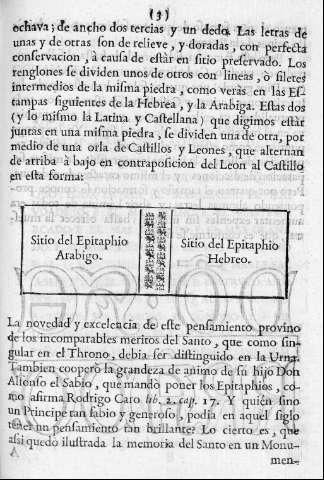 (3)
ochava; de ancho dos tercias y un dedo. Las letras de
unas y de otras son de relieve, y doradas, con perfecta
conservacion, à causa de estàr en sitio preservado. Los
renglones se dividen unos de otros con lineas, ò filetes
intermedios de la misma piedra, como veràs en las Es-
tampas siguientes de la Hebrea, y la Arabiga. Estas dos
(y lo mismo la Latina y Castellana) que digimos estàr
juntas en una misma piedra, se dividen una de otra, por
medio de una orla de Castillos y Leones, que alternan
de arriba à bajo en contraposicion del Leon al Castillo
en esta forma:
Sitio del Epitaphio
Arabigo.
Sitio del Epitaphio
Hebreo.
La novedad y excelencia de este pensamiento provino
de los incomparables meritos del Santo, que como sin-
gular en el Throno, debia ser distinguido en la Urna.
Tambien cooperò la grandeza de animo de su hijo Don
Alfonso el Sabio, que mandò poner los Epitaphios, co-
mo afirma Rodrigo Caro lib. 2. cap. 17. Y quièn sino
un Principe tan sabio y generoso, podia en aquel siglo
tener un pensamiento tan brillante? Lo cierto es, que
asi quedò ilustrada la memoria del Santo en un Monu-
men-